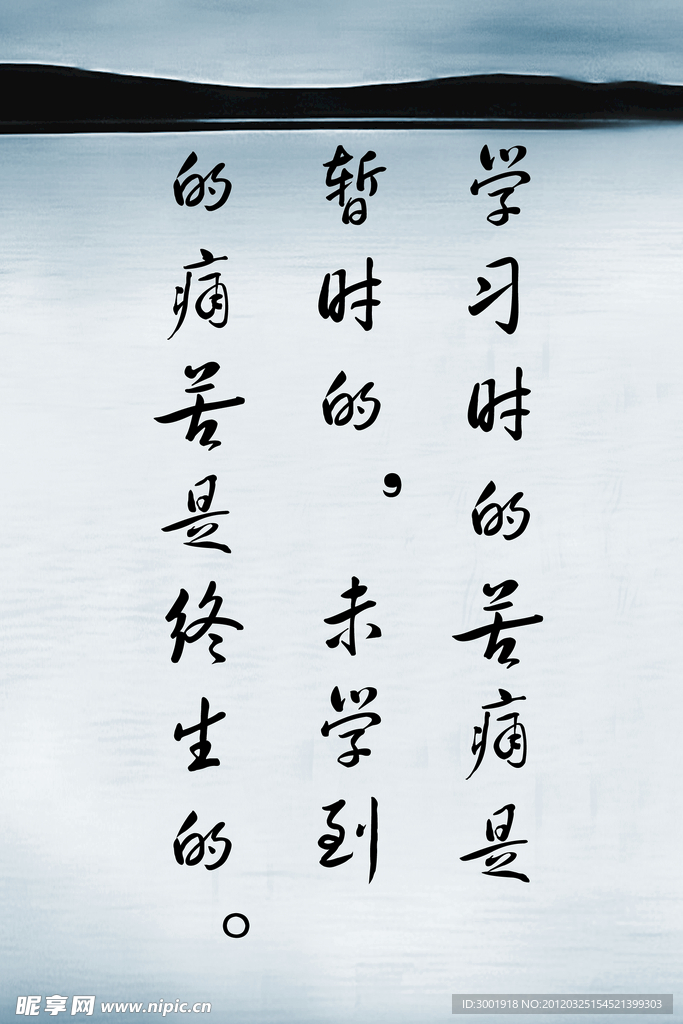 学习时的苦痛是
暂时的，未学到
的痛苦是终生的。
昵享网 www.nipic.cn
ID:3001918 NO:20120325154521399303